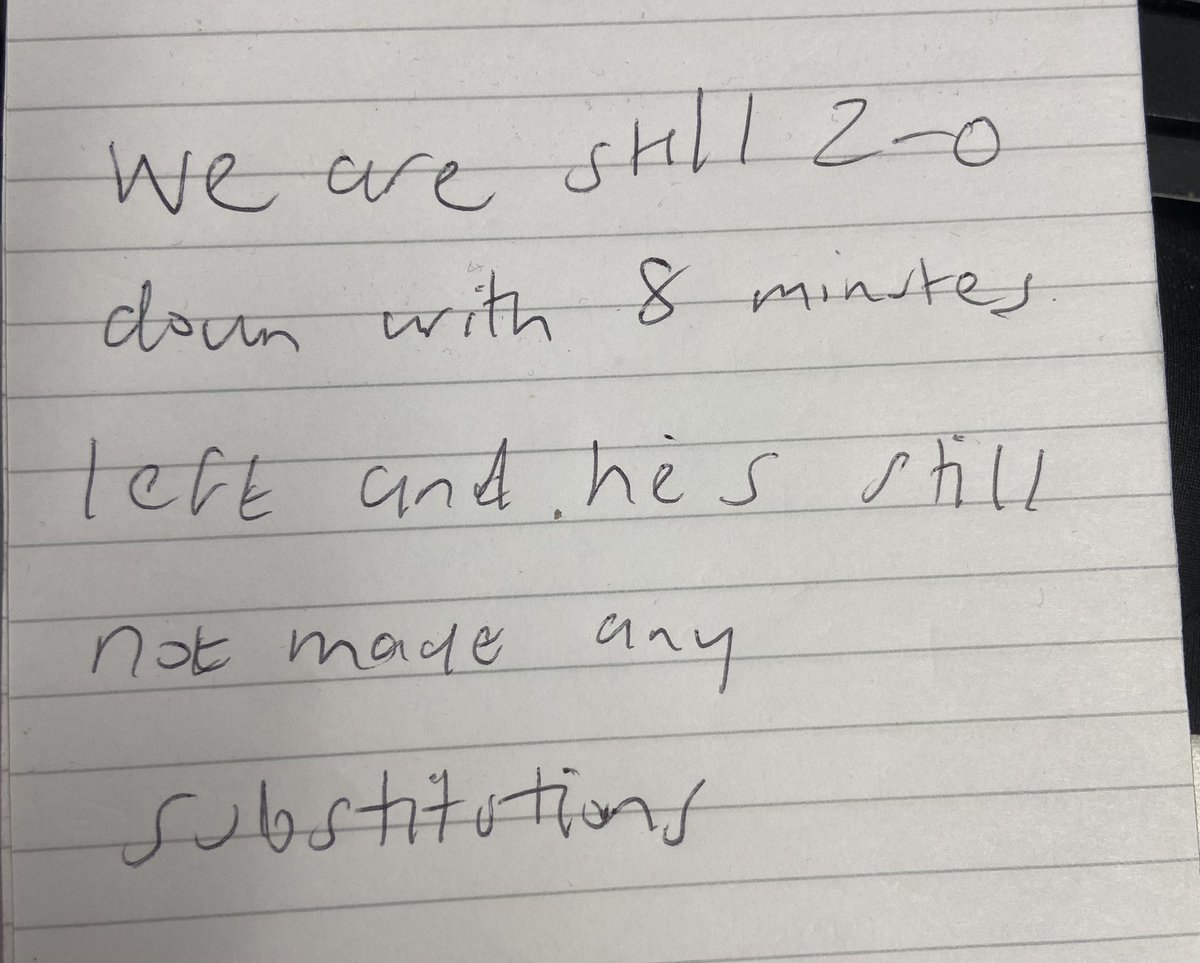 We are still 2-0
down with 8 minutes
left and he's still
not made any
substitutions